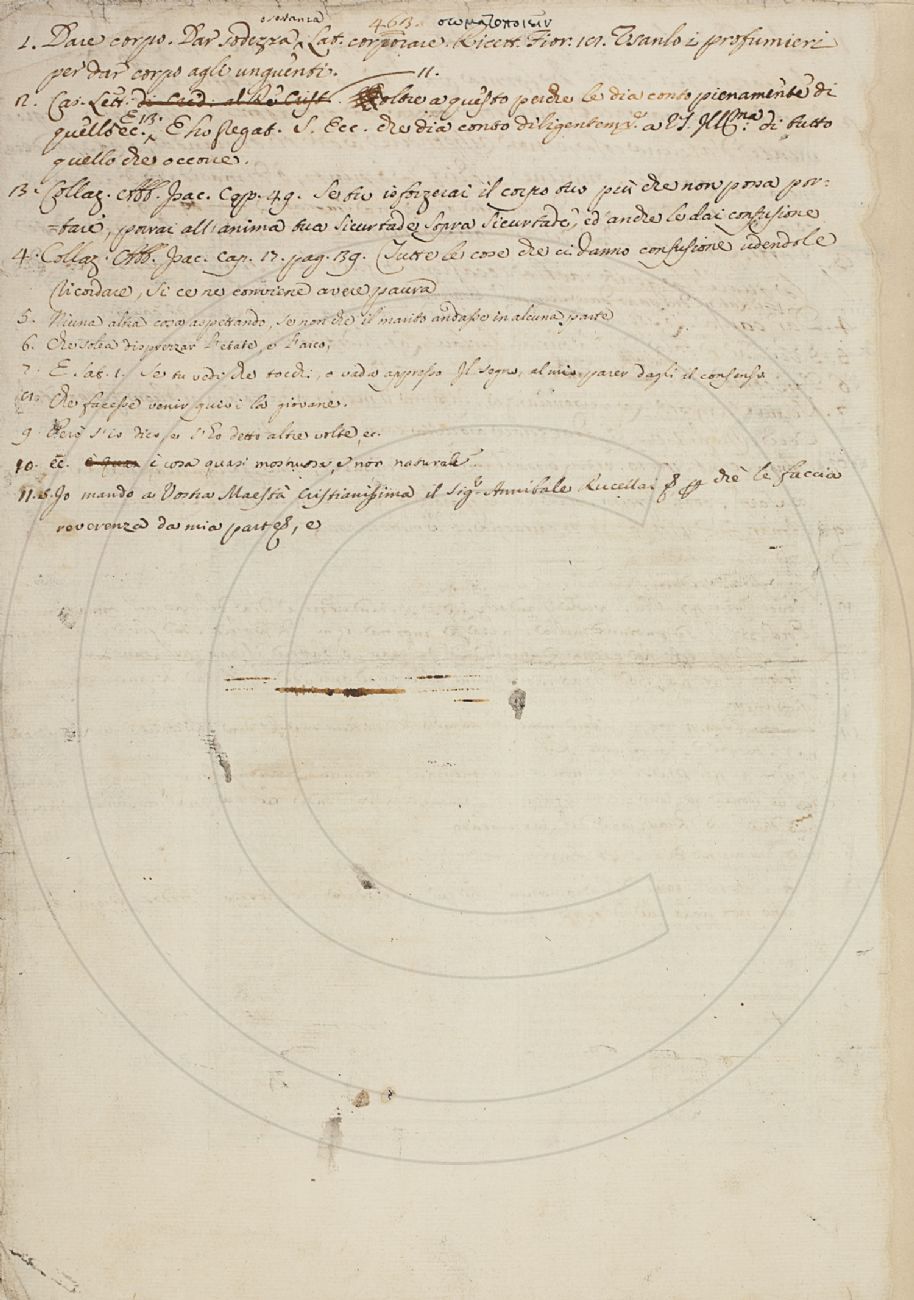 o sostanza 463. σωματοποιεῖν
1. Dare corpo. Dar sodezza, Lat. corporare. Ricett. Fior. 101. Usanlo i profumieri
per dar corpo agli unguenti. 11.
12. Cas. Lett. oltre a questo perchè le dia conto pienamente di
quello ec. E 13. E ho pregat. S. Ecc. che dia conto diligentem.e a V.S. Ill.ma di tutto
quello che occorre.
13. Collaz. Abb. Isac. Cap. 49. Se tu isforzerai il corpo tuo più che non possa por=
=tare, porrai all'anima tua sicurtade sopra sicurtade, ed anche le dai confusione
4. Collaz. Abb. Isac. Cap. 17. pag. 39. Tutte le cose che ci danno confusione udendole
ricordare, si ce ne conviene avere paura
5. Niuna altra cosa aspettando, se non che il marito andasse in alcuna parte
6. Che solea disprezzar l'etate, e l'arco,
7. E. sat. 1. Se tu vedi che tocchi, o vada appresso Il segno, al mio parer dagli il consenso
Che facesse venir quivi la giovane.
9. Però s'io dico, e s'ho detto altre volte, ec.
10. ec. è cosa quasi mostruosa, e non naturale
11. Io mando a Vostra Maestà Cristianissima il Sig.r Annibale Rucellai che le faccia
reverenza da mia parte, e